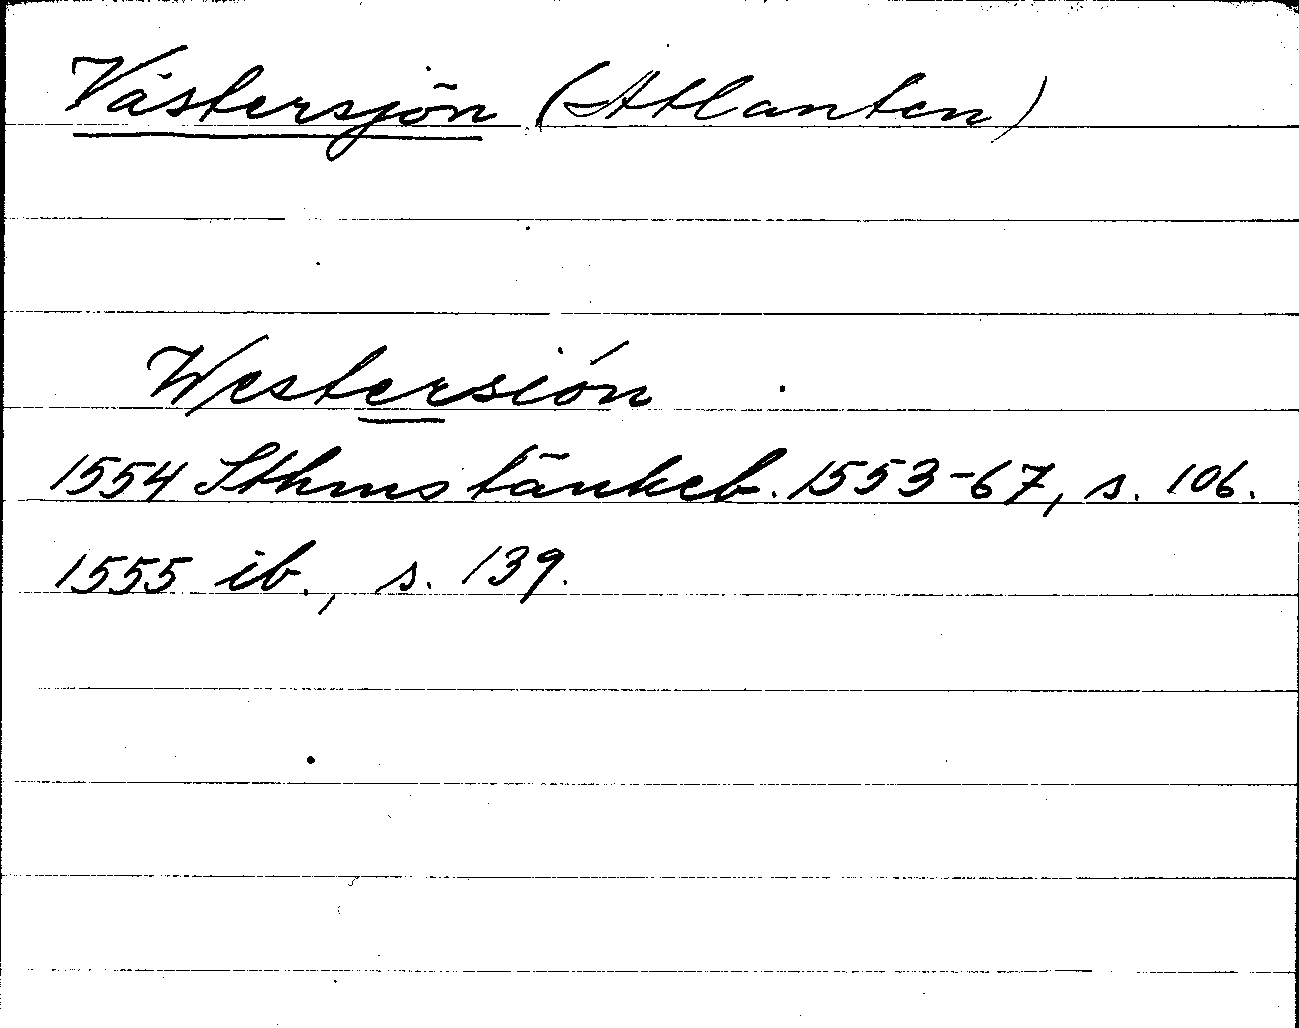 Västersjön (Atlanten)
Westersiön
1554 Sthms tänkeb. 1553-67, s. 106.
1555 ib., s. 139.